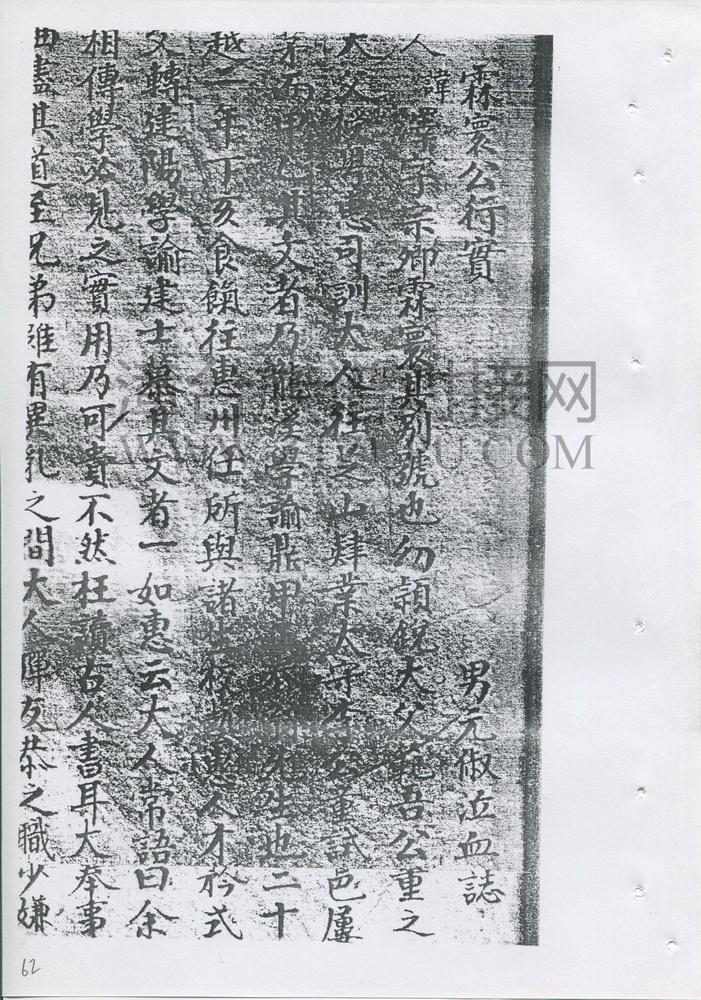 霖寰公行實 男元俶泣血誌
人諱澤字宗卿霖寰其別號也幼穎銳大父範吾公重之
大父 司訓大人在芝山肄業太守李公董試邑屢
第 其文者乃龍溪學諭鼎甲 生也二十
越二年丁亥食餼往惠州任所與諸生校 惠人才矜式
父轉建陽學諭建士慕其文者一如惠云大人常語曰余
相傳學必見之實用乃可貴不然枉讀古人書耳大奉事
曲盡其道至兄弟雖有異乳之間大人陣友恭之職少嫌
62